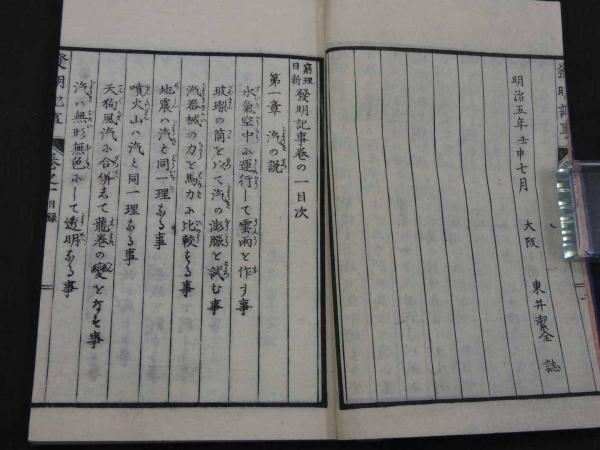 發明記事
明治五年壬申七月
大阪 東井潔全 誌
窮理日新 發明記事巻の一目次
第一章 汽の説
水氣空中に運行して雲雨を作す事
玻璃の筒を以て汽の澎脹を試む事
汽器械の力を馬力に比較する事
地震ハ汽と同一理なる事
噴火山ハ汽と同一理なる事
天狗風汽に合併して龍巻の變をなす事
汽ハ無形無色にして透明なる事
發明記事 巻之一 目録